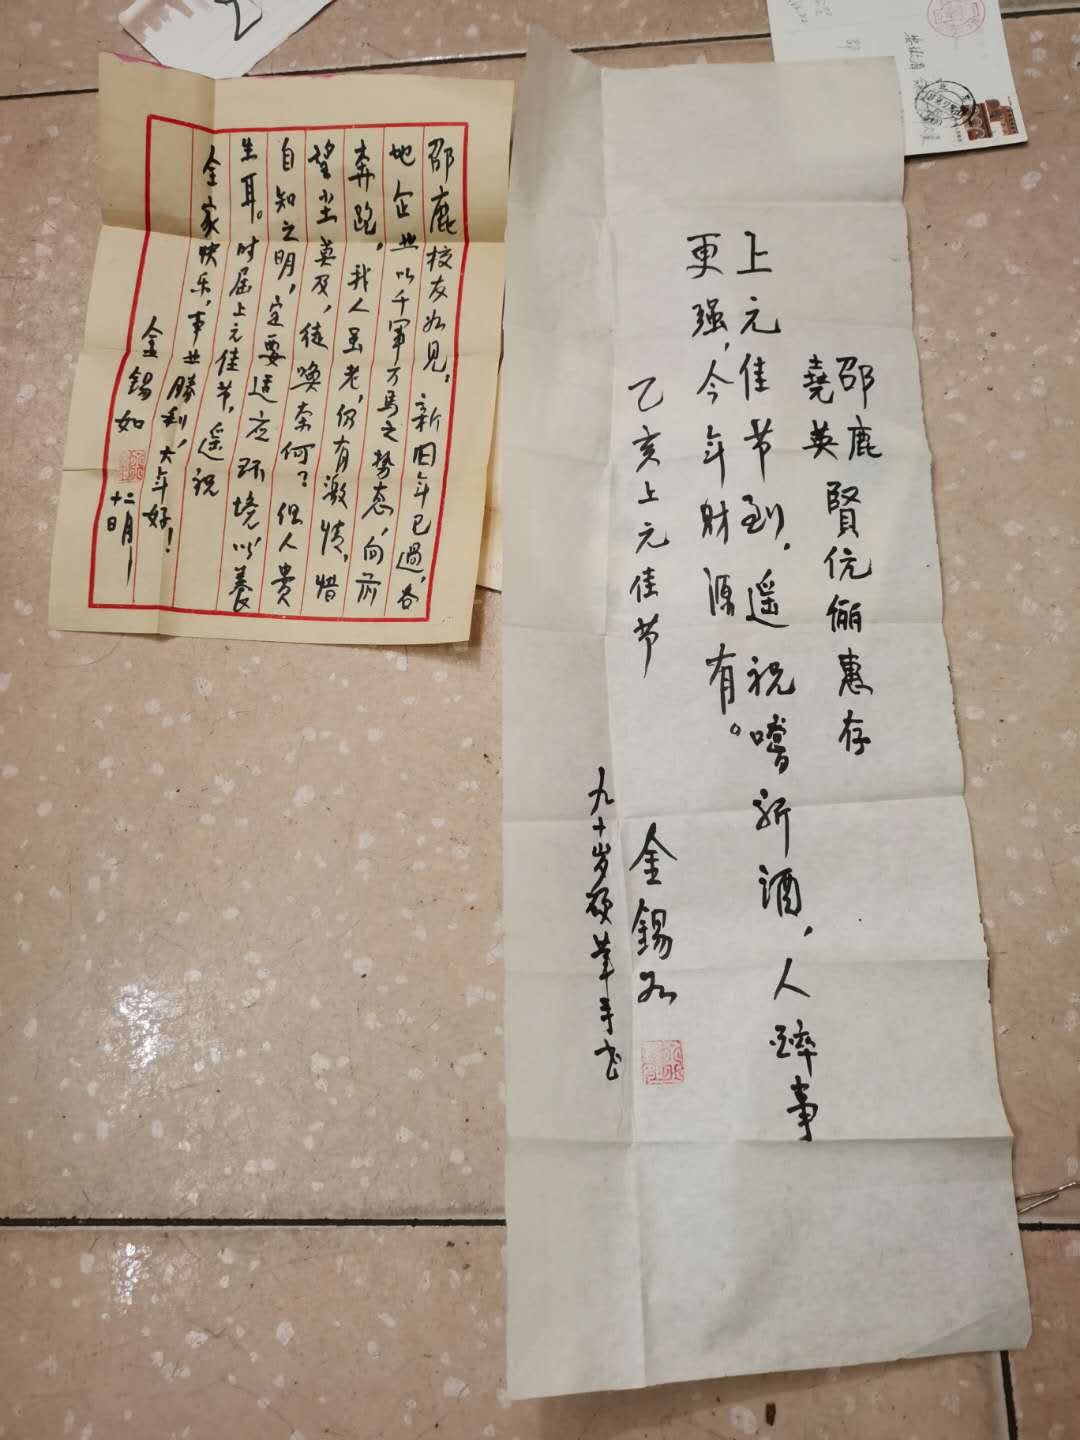 邵鹿
堯英
賢伉儷惠存
上元佳节到，遥祝嗜新酒，人醉事
更强，今年财源有。
乙亥上元佳节
金錫如
九十岁硬筆手书
邵鹿校友如见：新旧年已過，各
地企业以千军万马之势态，向前
奔跑，我人虽老，仍有激情，惜
望尘莫及，徒唤奈何？但人贵
自知之明，定要适应环境以养
生耳。时届上元佳节，遥祝
全家快乐，事业勝利，大年好！
金錫如
十二月一日